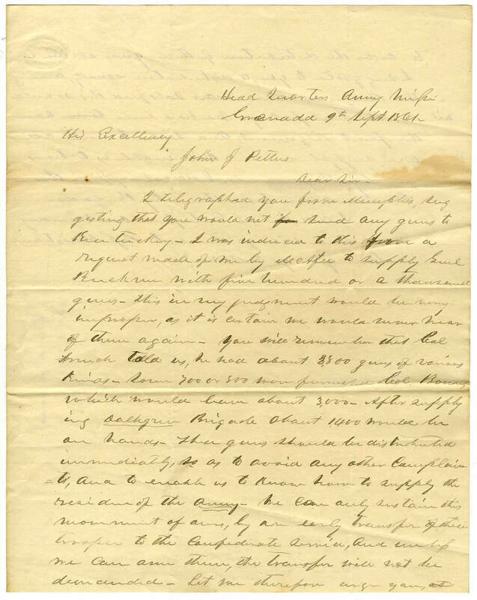 Head Quarters Army Missi
Grenada 9th Sept 1861
His Excellency
John J Pettus
Dear Sir
I telegraphed you from Memphis, sug
gesting that you would not send any guns to
Kentucky - I was induced to this a
request made of me by to supply Genl
Buckner with five hundred or a thousand
guns - this in my judgment would be very
improper, as it is certain we would never hear
of them again - You will remember that Col
told us, he had about 3,500 guns of various
kinds - Some 300 or 500 were Col
which would leave about 3,000 - After supply
ing Brigade about 1400 would be
on hand - These guns should be distributed
immediately, so as to avoid any other complain
ts, and to enable us to know how to supply the
residue of the army - We can only sustain this
movement of ours, by an early transfer of these
troops to the Confederate service, and unless
we can arm them, the transfer will not be
demanded - Let me therefore urge you,